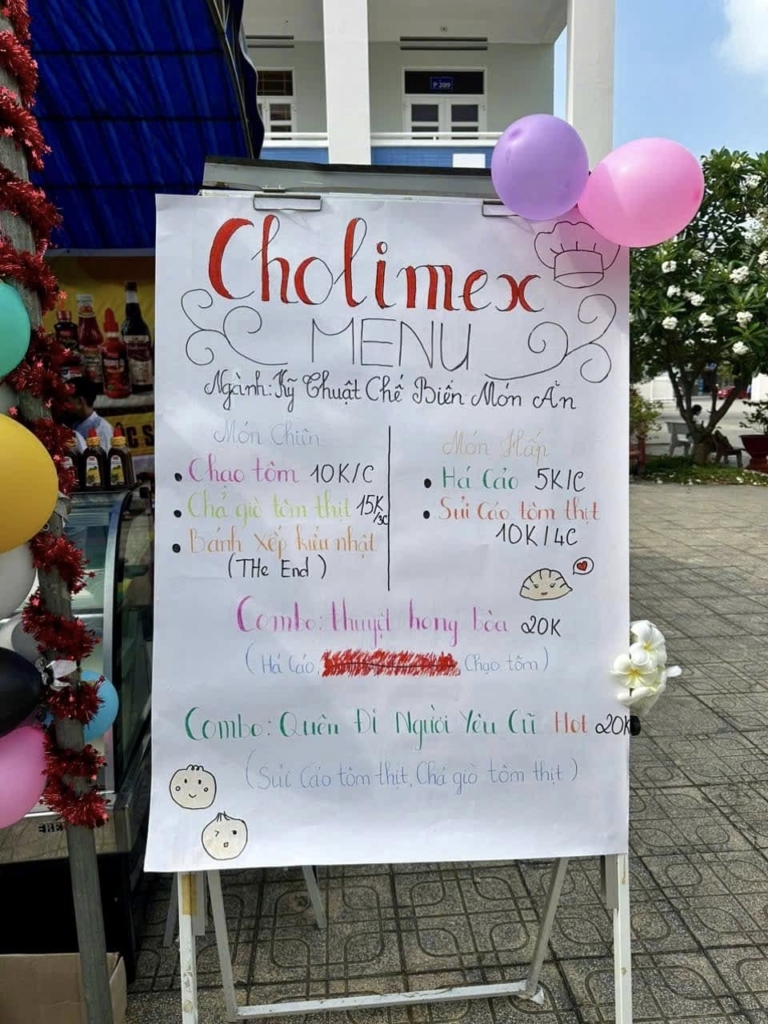 P 209
Cholimex
MENU
Ngành: Kỹ Thuật Chế Biến Món Ăn
Món Chiên
• Chạo tôm 10K/C
• Chả giò tôm thịt 15K/3C
• Bánh xếp kiểu nhật
(THe End)
Món Hấp
• Há Cảo 5K/C
• Sủi Cảo tôm thịt
10K/4C
Combo: thuyệt hong bòa 20K
(Há Cảo, Chạo tôm)
Combo: Quên Đi Người Yêu Cũ Hot 20K
(Sủi Cảo tôm thịt, Chả giò tôm thịt)